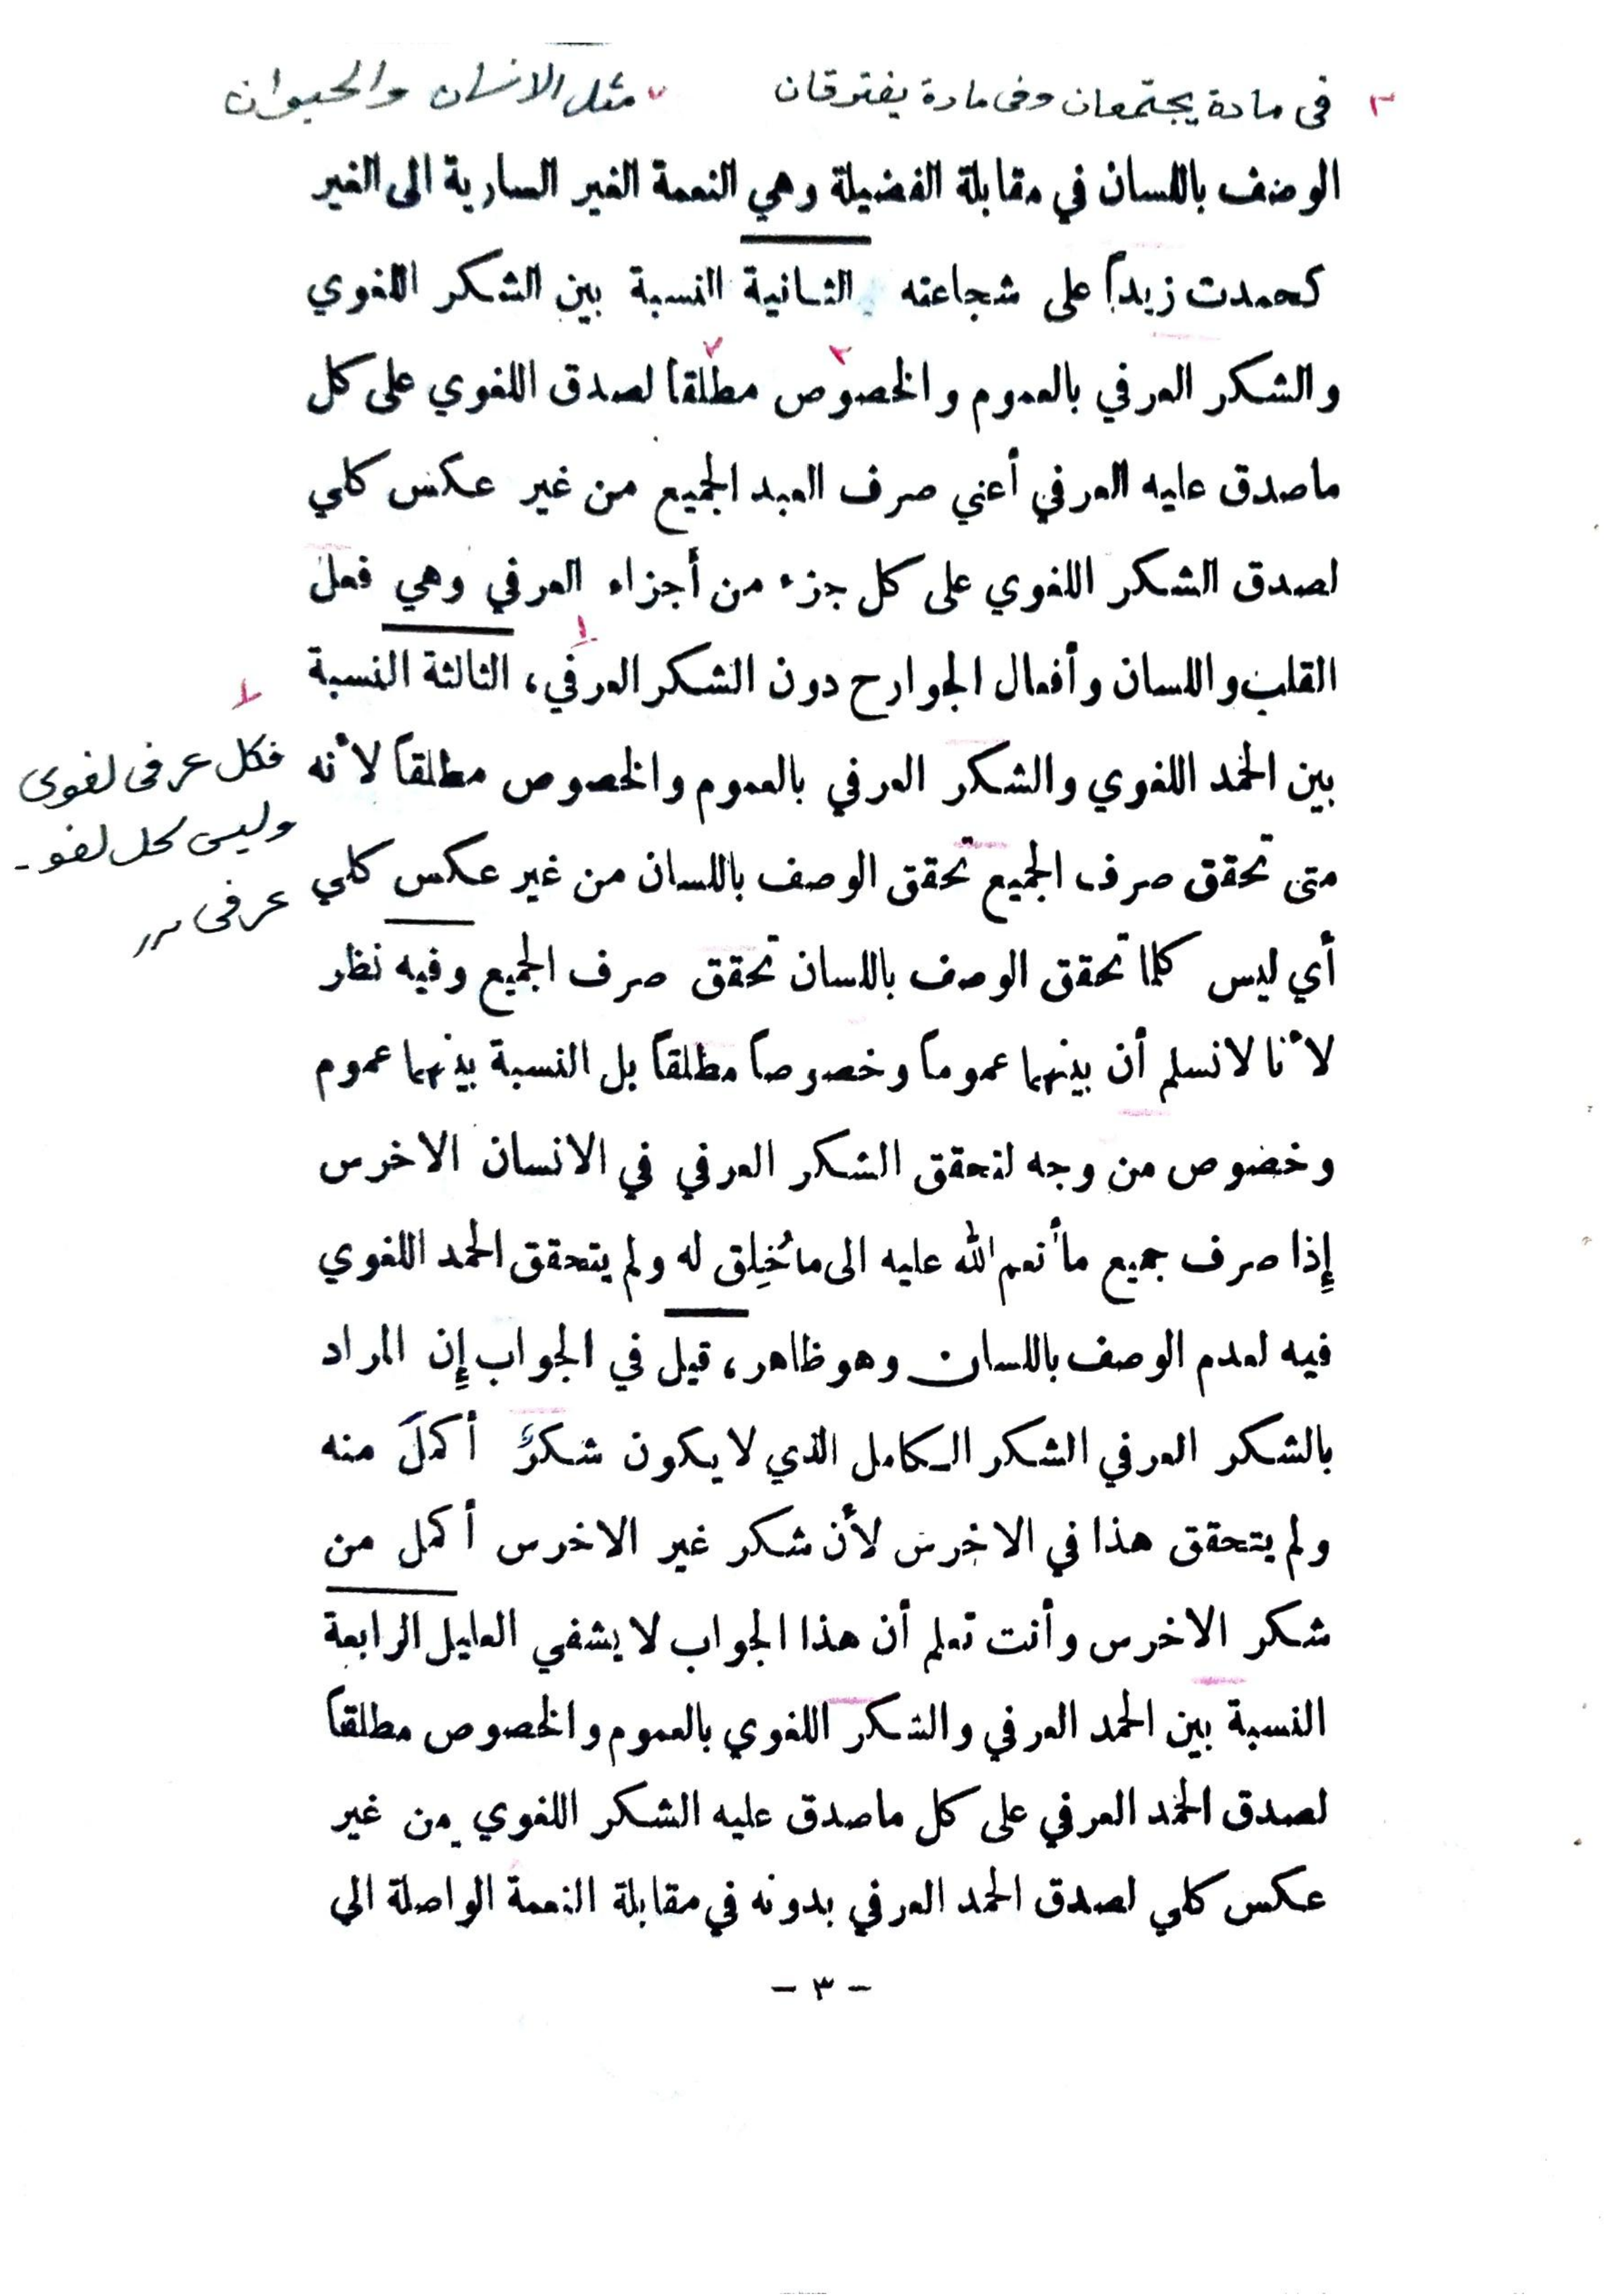 ٣ فى مادة يجتمعان وفى مادة يفترقان ٧ مثل الانسان والحيوان
الوصف باللسان في مقابلة الفضيلة وهي النعمة الغير السارية الى الغير
كحمدت زيداً على شجاعته الثانية النسبة بين الشكر اللغوي
والشكر العرفي بالعموم والخصوص مطلقا لصدق اللغوي على كل
ماصدق عليه العرفي أعني صرف العبد الجميع من غير عكس كلي
لصدق الشكر اللغوي على كل جزء من أجزاء العرفي وهي فعل
القلب واللسان وأفعال الجوارح دون الشكر العرفي، الثالثة النسبة
بين الحمد اللغوي والشكر العرفي بالعموم والخصوص مطلقاً لأنه
متى تحقق صرف الجميع تحقق الوصف باللسان من غير عكس كلي
أي ليس كلما تحقق الوصف باللسان تحقق صرف الجميع وفيه نظر
لأنا لانسلم أن بينهما عموماً وخصوصاً مطلقاً بل النسبة بينهما عموم
وخصوص من وجه لتحقق الشكر العرفي في الانسان الاخرس
إِذا صرف جميع مأنعم الله عليه الى ماخُلِق له ولم يتحقق الحمد اللغوي
فيه لعدم الوصف باللسان وهو ظاهر، قيل في الجواب إِن المراد
بالشكر العرفي الشكر الكامل الذي لايكون شكرٌ أكملَ منه
ولم يتحقق هذا في الاخرس لأن شكر غير الاخرس أكمل من
شكر الاخرس وأنت تعلم أن هذا الجواب لايشفي العليل الرابعة
النسبة بين الحمد العرفي والشكر اللغوي بالعموم والخصوص مطلقاً
لصدق الحمد العرفي على كل ماصدق عليه الشكر اللغوي من غير
عكس كلي لصدق الحمد العرفي بدونه في مقابلة النعمة الواصلة الى
— ٣ —
فكل عرفى لغوى
وليس كل لغو-
عرفى